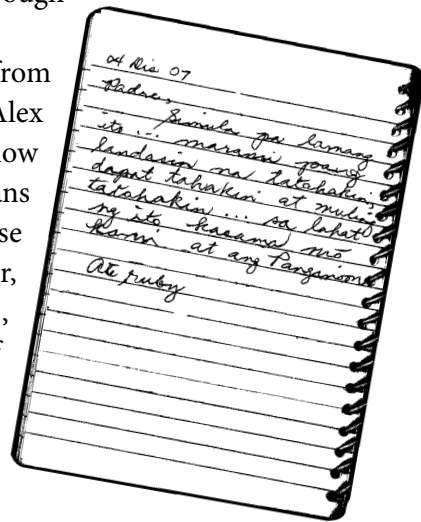 rough
from
Alex
low
ans
se
r,
,
04 Dis 07
Padre,
Simula pa lamang
ito... marami pang
landasin na tatahakin,
dapat tahakin at muling
tatahakin... sa lahat
ng ito kasama mo
kami at ang Panginoon
Ate ruby